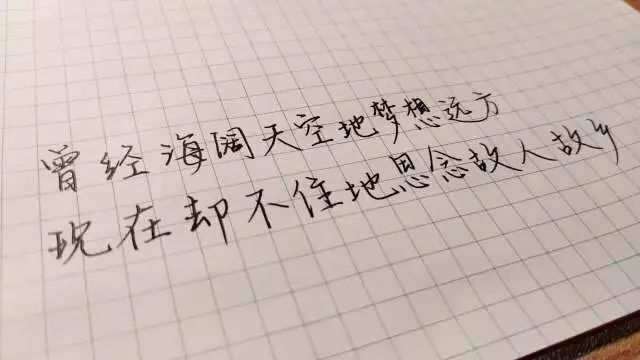 曾经海阔天空地梦想远方
现在却不住地思念故人故乡